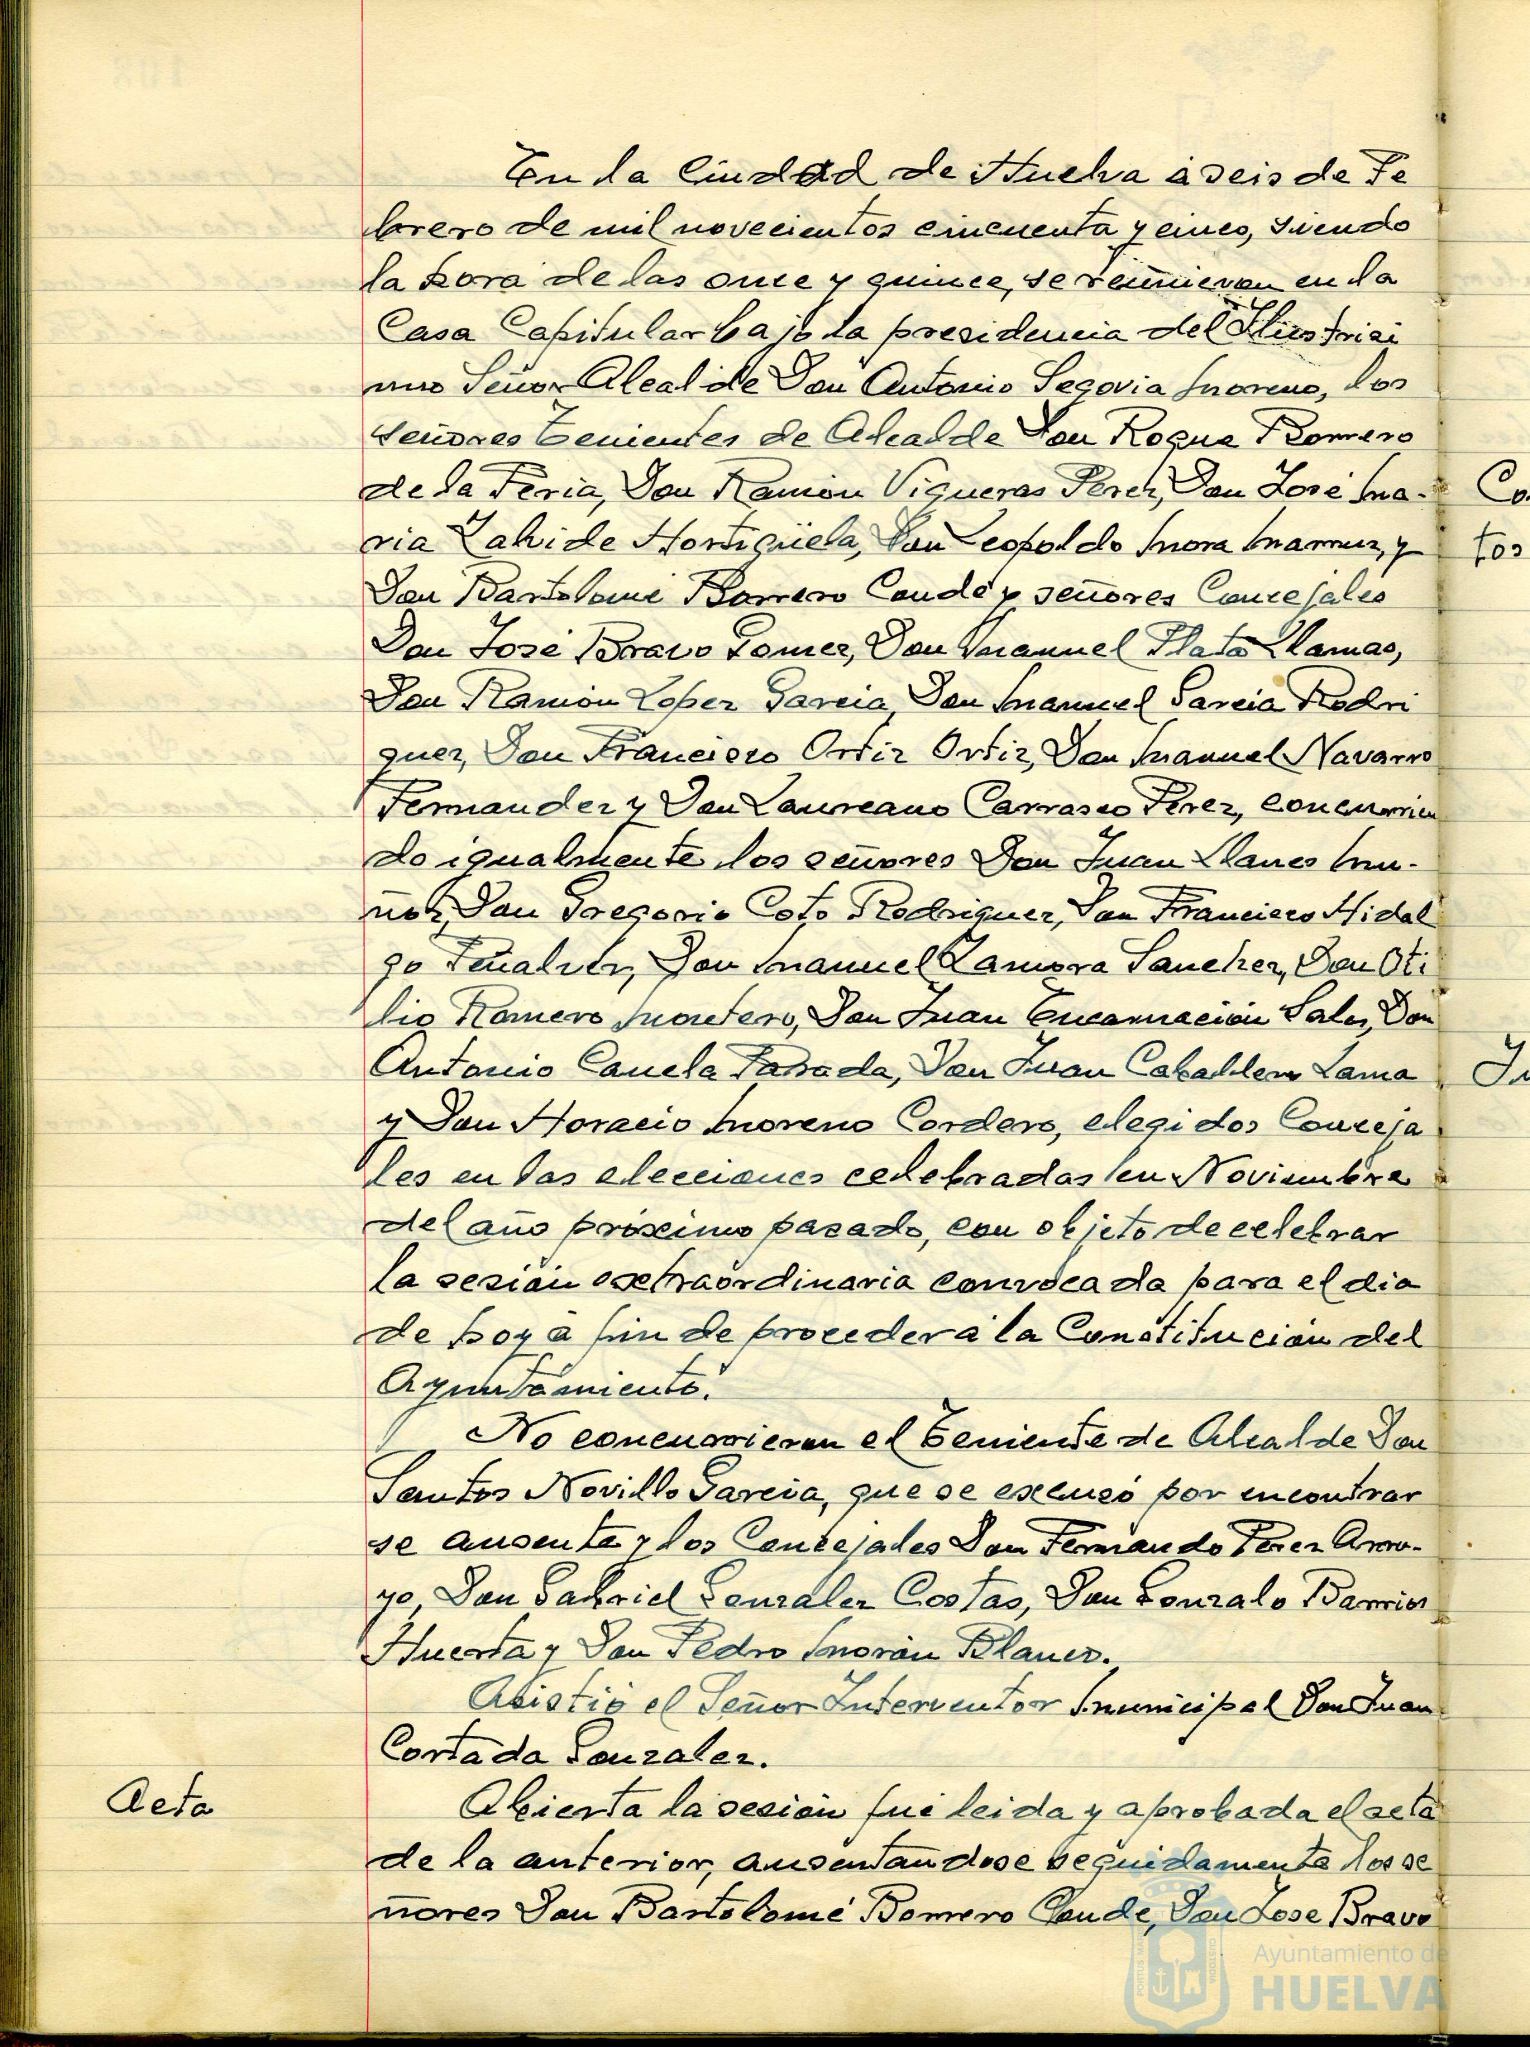 En la Ciudad de Huelva á seis de Fe
brero de mil novecientos cincuenta y cinco, siendo
la hora de las once y quince, se reunieron en la
Casa Capitular bajo la presidencia del Ilustrisi
mo Señor Alcalde Don Antonio Segovia Moreno, los
señores Tenientes de Alcalde Don Roque Romero
de la Feria, Don Ramón Vigueras Perez, Don José Ma-
ria Zalvide Hortigüela, Don Leopoldo Mora y
Don Bartolomé Borrero Conde y señores Concejales
Don José Bravo Gomez, Don Manuel Plata Llamas,
Don Ramón Lopez Garcia, Don Manuel Garcia Rodri
guez, Don Francisco Ortiz Ortiz, Don Manuel Navarro
Fernandez y Don Laureano Carrasco Pérez, concurrien
do igualmente los señores Don Juan Llanes Mu-
ñoz, Don Gregorio Coto Rodriguez, Don Francisco Hidal
go Peñalver, Don Manuel Zamora Sanchez, Don Oti
lio Romero Montero, Don Juan Encarnación Salas, Don
Antonio Canela Parada, Don Juan Caballero Lama
y Don Horacio Moreno Cordero, elegidos Conceja
les en las elecciones celebradas en Noviembre
del año próximo pasado, con objeto de celebrar
la sesión extraordinaria convocada para el dia
de hoy á fin de proceder á la Constitución del
Ayuntamiento.
No concurrieron el Teniente de Alcalde Don
Santos Novillo Garcia, que se excusó por encontrar
se ausente y los Concejales Don Fernando Pérez Arro-
yo, Don Gabriel Gonzalez Costas, Don Gonzalo Barrios
Huerta y Don Pedro Morón Blanco.
Asistió el Señor Interventor Municipal Don Juan
Cortada Gonzalez.
Acta
Abierta la sesión fué leida y aprobada el acta
de la anterior, ausentandose seguidamente los se
ñores Don Bartolomé Borrero Conde, Don Jose Bravo
Co
tos
Ayuntamiento de
HUELVA